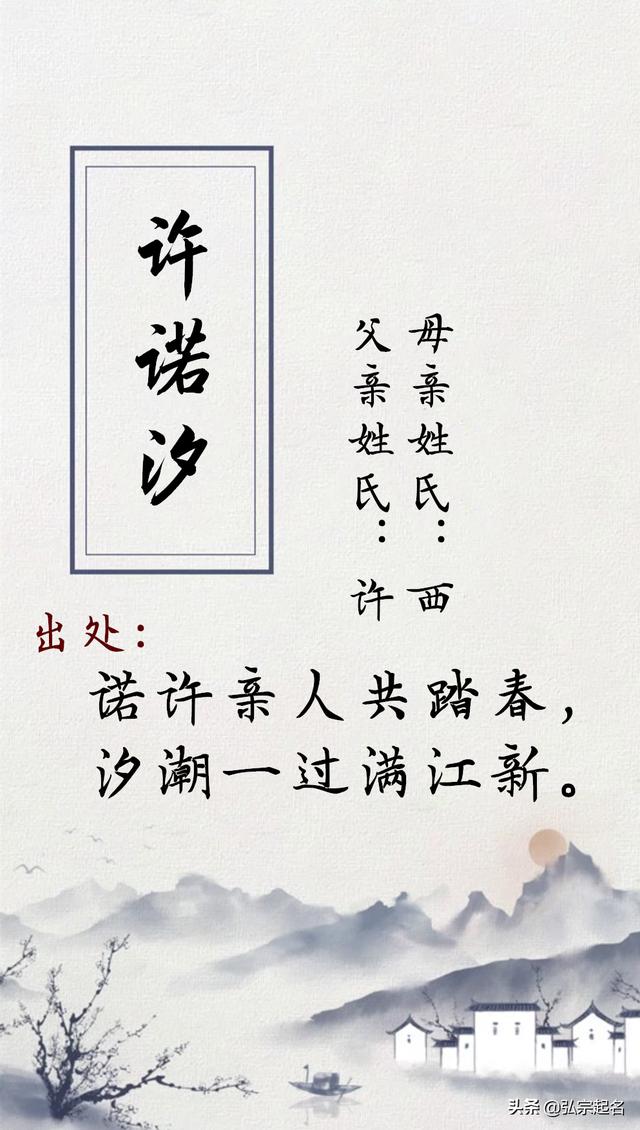 许诺汐
母亲姓氏：西
父亲姓氏：许
出处：
诺许亲人共踏春，
汐潮一过满江新。
头条 @弘宗起名